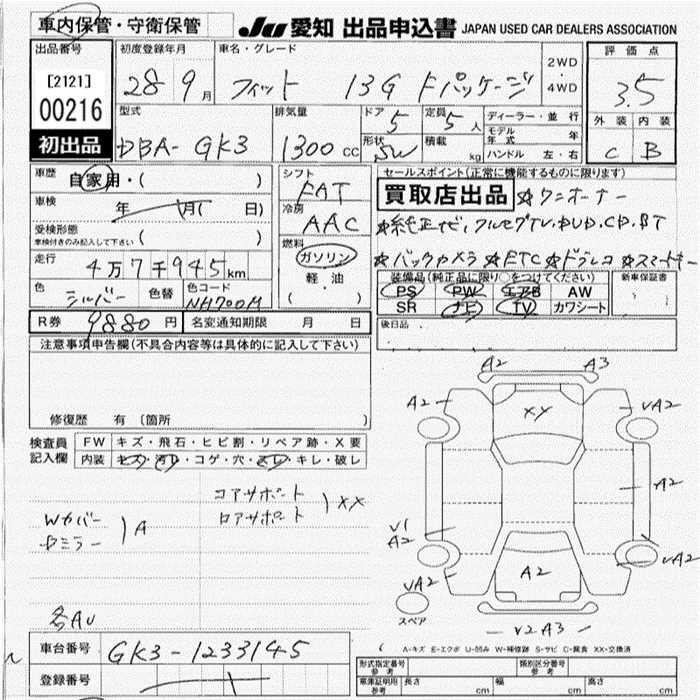 車内保管・守衛保管
JU 愛知 出品申込書 JAPAN USED CAR DEALERS ASSOCIATION
出品番号 初度登録年月 車名・グレード 評価点
[2121] 28 9月 フィット 13G Fパッケージ 2WD・4WD 3.5
00216 型式 排気量 ドア 定員 ディーラー・並行 外装 内装
初出品 DBA- GK3 1300 cc 5 5人 モデル年式 年
形状 SW 積載 kg ハンドル 左・右 C B
車歴 自家用・( ) シフト FAT セールスポイント(正常に機能するものに限ります)
車検 年 月( 日) 冷房 AAC 買取店出品 ☆ワンオーナー
受検形態 車検付きのみ記入して下さい ( ) ☆純正ナビ,フルセグTV,DVD,CD,BT
走行 4万7千945km 燃料 ガソリン ☆バックカメラ ☆ETC ☆ドラレコ ☆スマートキー
軽油 装備品(純正品に限り○をつけてください) 新車保証書
色 シルバー 色替 色コード NH700M ( ) PS PW エアB AW
SR ナビ TV カワシート
R券 9880円 名変通知期限 月 日 後日品
注意事項申告欄(不具合内容等は具体的に記入して下さい)
修復歴 有 〔箇所 〕
検査員記入欄 FW キズ・飛石・ヒビ割・リペア跡・X要
内装 キズ・汚れ・コゲ・穴・スレ・キレ・破レ
A2 A3
A2 XY UA2
A2
コアサポート
ロアサポート XX
Wカバー
ドミラー A
V1
A2
A2 UA2
UA2
スペア
各AU
V2A3
A-キズ E-エクボ U-凹み W-補修跡 S-サビ C-腐食 XX-交換済
車台番号 GK3-1233145
登録番号
形式指定番号 参考 類別区分番号 参考
車庫証明用 参考 長さ cm 幅 cm 高さ cm